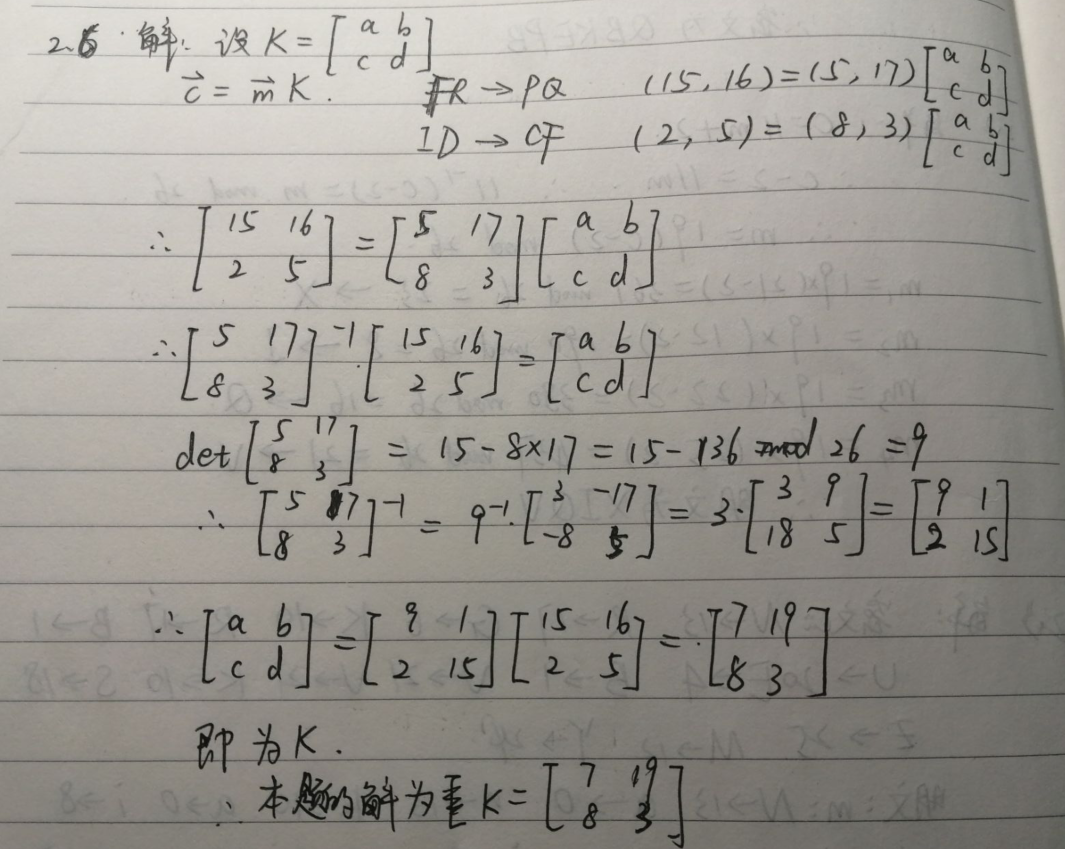 2.6 解: 设 K = [a b; c d]
c⃗ = m⃗ K. FR → PQ (15, 16) = (5, 17) [a b; c d]
ID → CF (2, 5) = (8, 3) [a b; c d]
∴ [15 16; 2 5] = [5 17; 8 3] [a b; c d]
∴ [5 17; 8 3]⁻¹ · [15 16; 2 5] = [a b; c d]
det [5 17; 8 3] = 15 - 8×17 = 15 - 136 mod 26 = 9
∴ [5 17; 8 3]⁻¹ = 9⁻¹ · [3 -17; -8 5] = 3 · [3 9; 18 5] = [9 1; 2 15]
∴ [a b; c d] = [9 1; 2 15] [15 16; 2 5] = · [7 19; 8 3]
即为 K.
∴ 本题的解为 K = [7 19; 8 3]